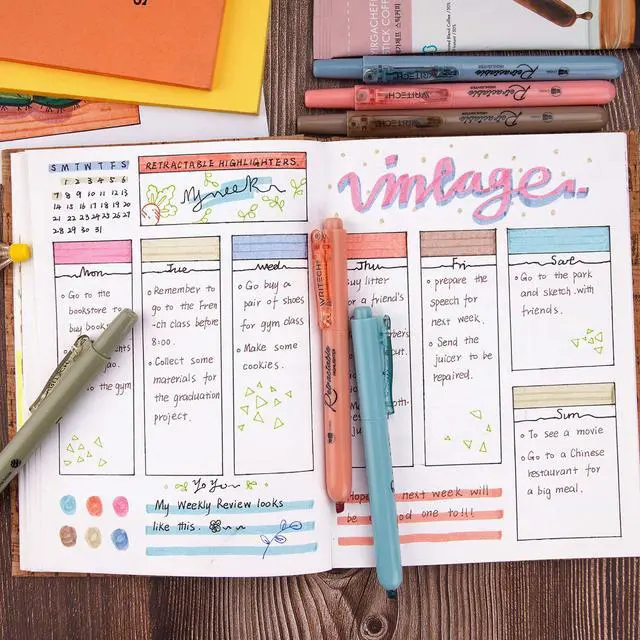 S M T W T F S
1 2 3 4 5 6
7 8 9 10 11 12 13
14 15 16 17 18 19 20
21 22 23 24 25 26 27
28 29 30 31
RETRACTABLE HIGHLIGHTERS
My week
vintage
Mon
Go to the
bookstore to
buy books
to the gym
Tue
Remember to
go to the Fren
-ch class before
8:00.
Collect some
materials for
the graduation
project.
Wed
Go buy a
pair of shoes
for gym class
Make some
cookies.
Thu
litter
a friend's
Fri
prepare the
speech for
next week.
Send the
juicer to be
repaired.
Sat
Go to the park
and sketch with
friends.
Sun
To see a movie
Go to a Chinese
restaurant for
a big meal.
My Weekly Review looks
like this.
next week will
be good one to!!!
STICK COFFEE
WRITECH Retractable HIGHLIGHTER
WRITECH Retractable HIGHLIGHTER
WRITECH Retractable HIGHLIGHTER
WRITECH Retractable HIGHLIGHTER